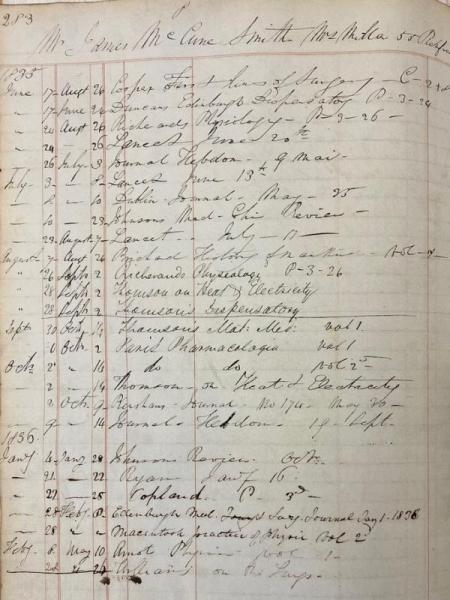 283
Mr James McCune Smith Mrs Miller 55
1835
June 17 Augt 26 Coopers First lines of Surgery - C -
" 17 June 24 Duncans Edinburgh Dispensatory D - 3 - 24
" 24 Augt 26 Richerands Physiology - P - 3 - 26 -
" 24 - 26 Lancet June 20th
" 26 July 3 Journal Hebdom - 9 Mai -
July 3 - 8 Lancet June 13th
" 8 - 10 Dublin Journal - May - 35
" 10 - 23 Johnsons Med - Chir Review -
" 23 August 7 Lancet - - July - 11 -
August 7 Augt 26 History of
" 26 Septr 2 Richerands Physiology P - 3 - 26
" 28 Septr 2 Thomson on Heat & Electricity
" 28 Septr 2 Thomsons Dispensatory
Sept 10 Octr 14 Thomsons Mat: Med: vol 1
Octr 2 Paris Pharmacologia vol 1
Octr 2 " 14 do do Vol 2d
" 2 - 14 Thomson - on Heat & Electricity
" 2 Octr 9 Journal No 174 - May 30 -
" 9 - 14 Journal Hebdom - 19 Sept -
1836
Jany 4 Jany 20 Johnsons Review - Octr -
" 21 - 22 Ryan Jany 16 -
" 27 - 28 Copland P - 3d -
" 28 Feby 8 Edenburgh Med. Surg. Journal Jan 1 - 1836
" " - " Macintosh Practice of Physic Vol 2d
Feby 8 May 10 Arnot Physics Vol 1 -
" 24 " 24 on the Lungs -